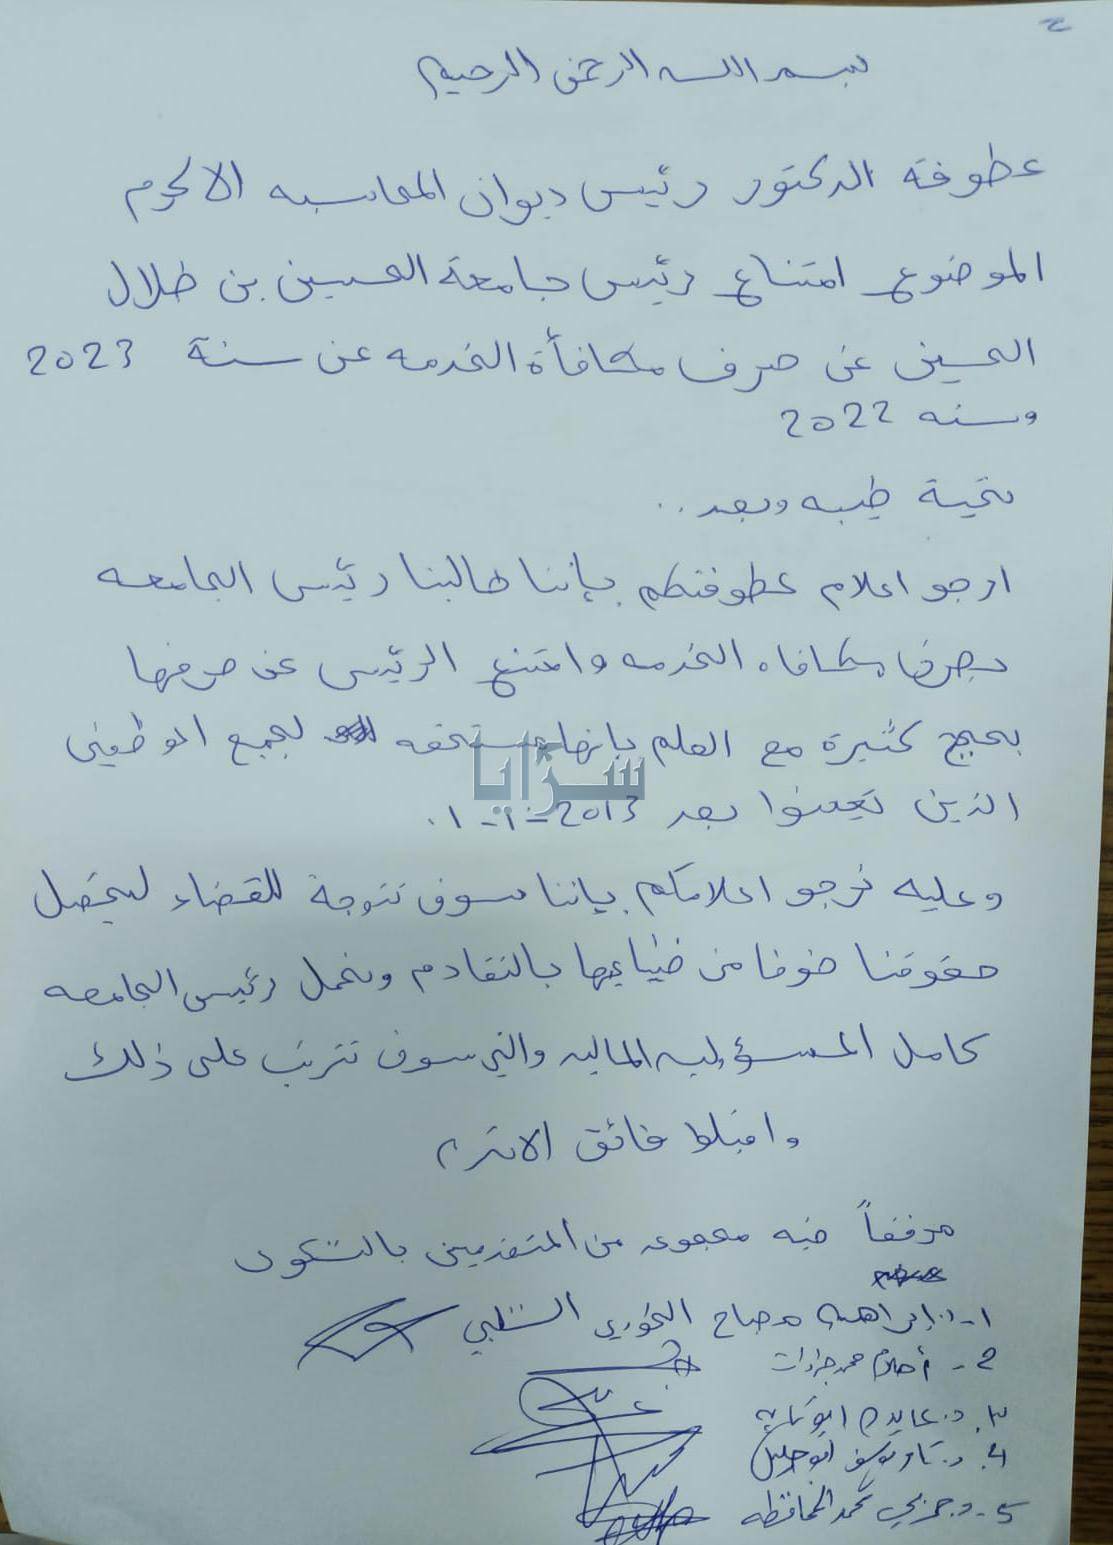 بسم الله الرحمن الرحيم
عطوفة الدكتور رئيس ديوان المحاسبه الاكرم
الموضوع امتناع رئيس جامعة الحسين بن طلال
الحسين عن صرف مكافأة الخدمه عن سنة 2023
وسنه 2022
تحية طيبه وبعد ..
ارجو اعلام عطوفتكم بإننا طالبنا رئيس الجامعه
بصرف مكافاه الخدمه وامتنع الرئيس عن صرفها
بحجج كثيرة مع العلم بانها مستحقه لجميع الوظيفي
الذين تعينوا بعد 2013-1-1.
وعليه نرجو اعلامكم بإننا سوف نتوجة للقضاء لتحصل
حقوقنا خوفا من ضياعها بالتقادم ونحمل رئيس الجامعه
كامل المسؤليه الماليه والتي سوف تترتب على ذلك
واقبلوا فائق الاحترام
مرفقاً فيه مجموعه من المتقدمين بالشكوى
1- د. إبراهيم مصباح الخوري الشلبي
2- أحلام محمد جرادات
3. د. عايده ابو
4. د. يوسف ابو
5- د. محمد المحافظه
سرايا